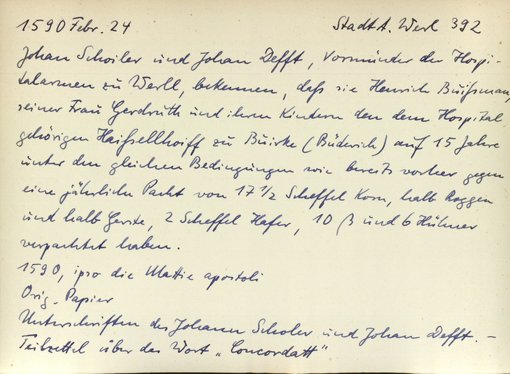 1590 Febr. 24 StadtA. Werl 392
Johan Schoiler und Johan Defft, Vormünder der Hospi-
talarmen zu Werll, bekennen, daß sie Henrich Buißman,
seiner Frau Gerdruth und ihren Kindern den dem Hospital
gehörigen Haißellhoiff zu Buirke (Büderich) auf 15 Jahre
unter den gleichen Bedingungen wie bereits vorher gegen
eine jährliche Pacht von 17 1/2 Scheffel Korn, halb Roggen
und halb Gerste, 2 Scheffel Hafer, 10 ß und 6 Hühner
verpachtet haben.
1590, ipso die Mattie apostoli
Orig. Papier
Unterschriften des Johann Scholer und Johan Defft. –
Teilzettel über das Wort „Concordatt"